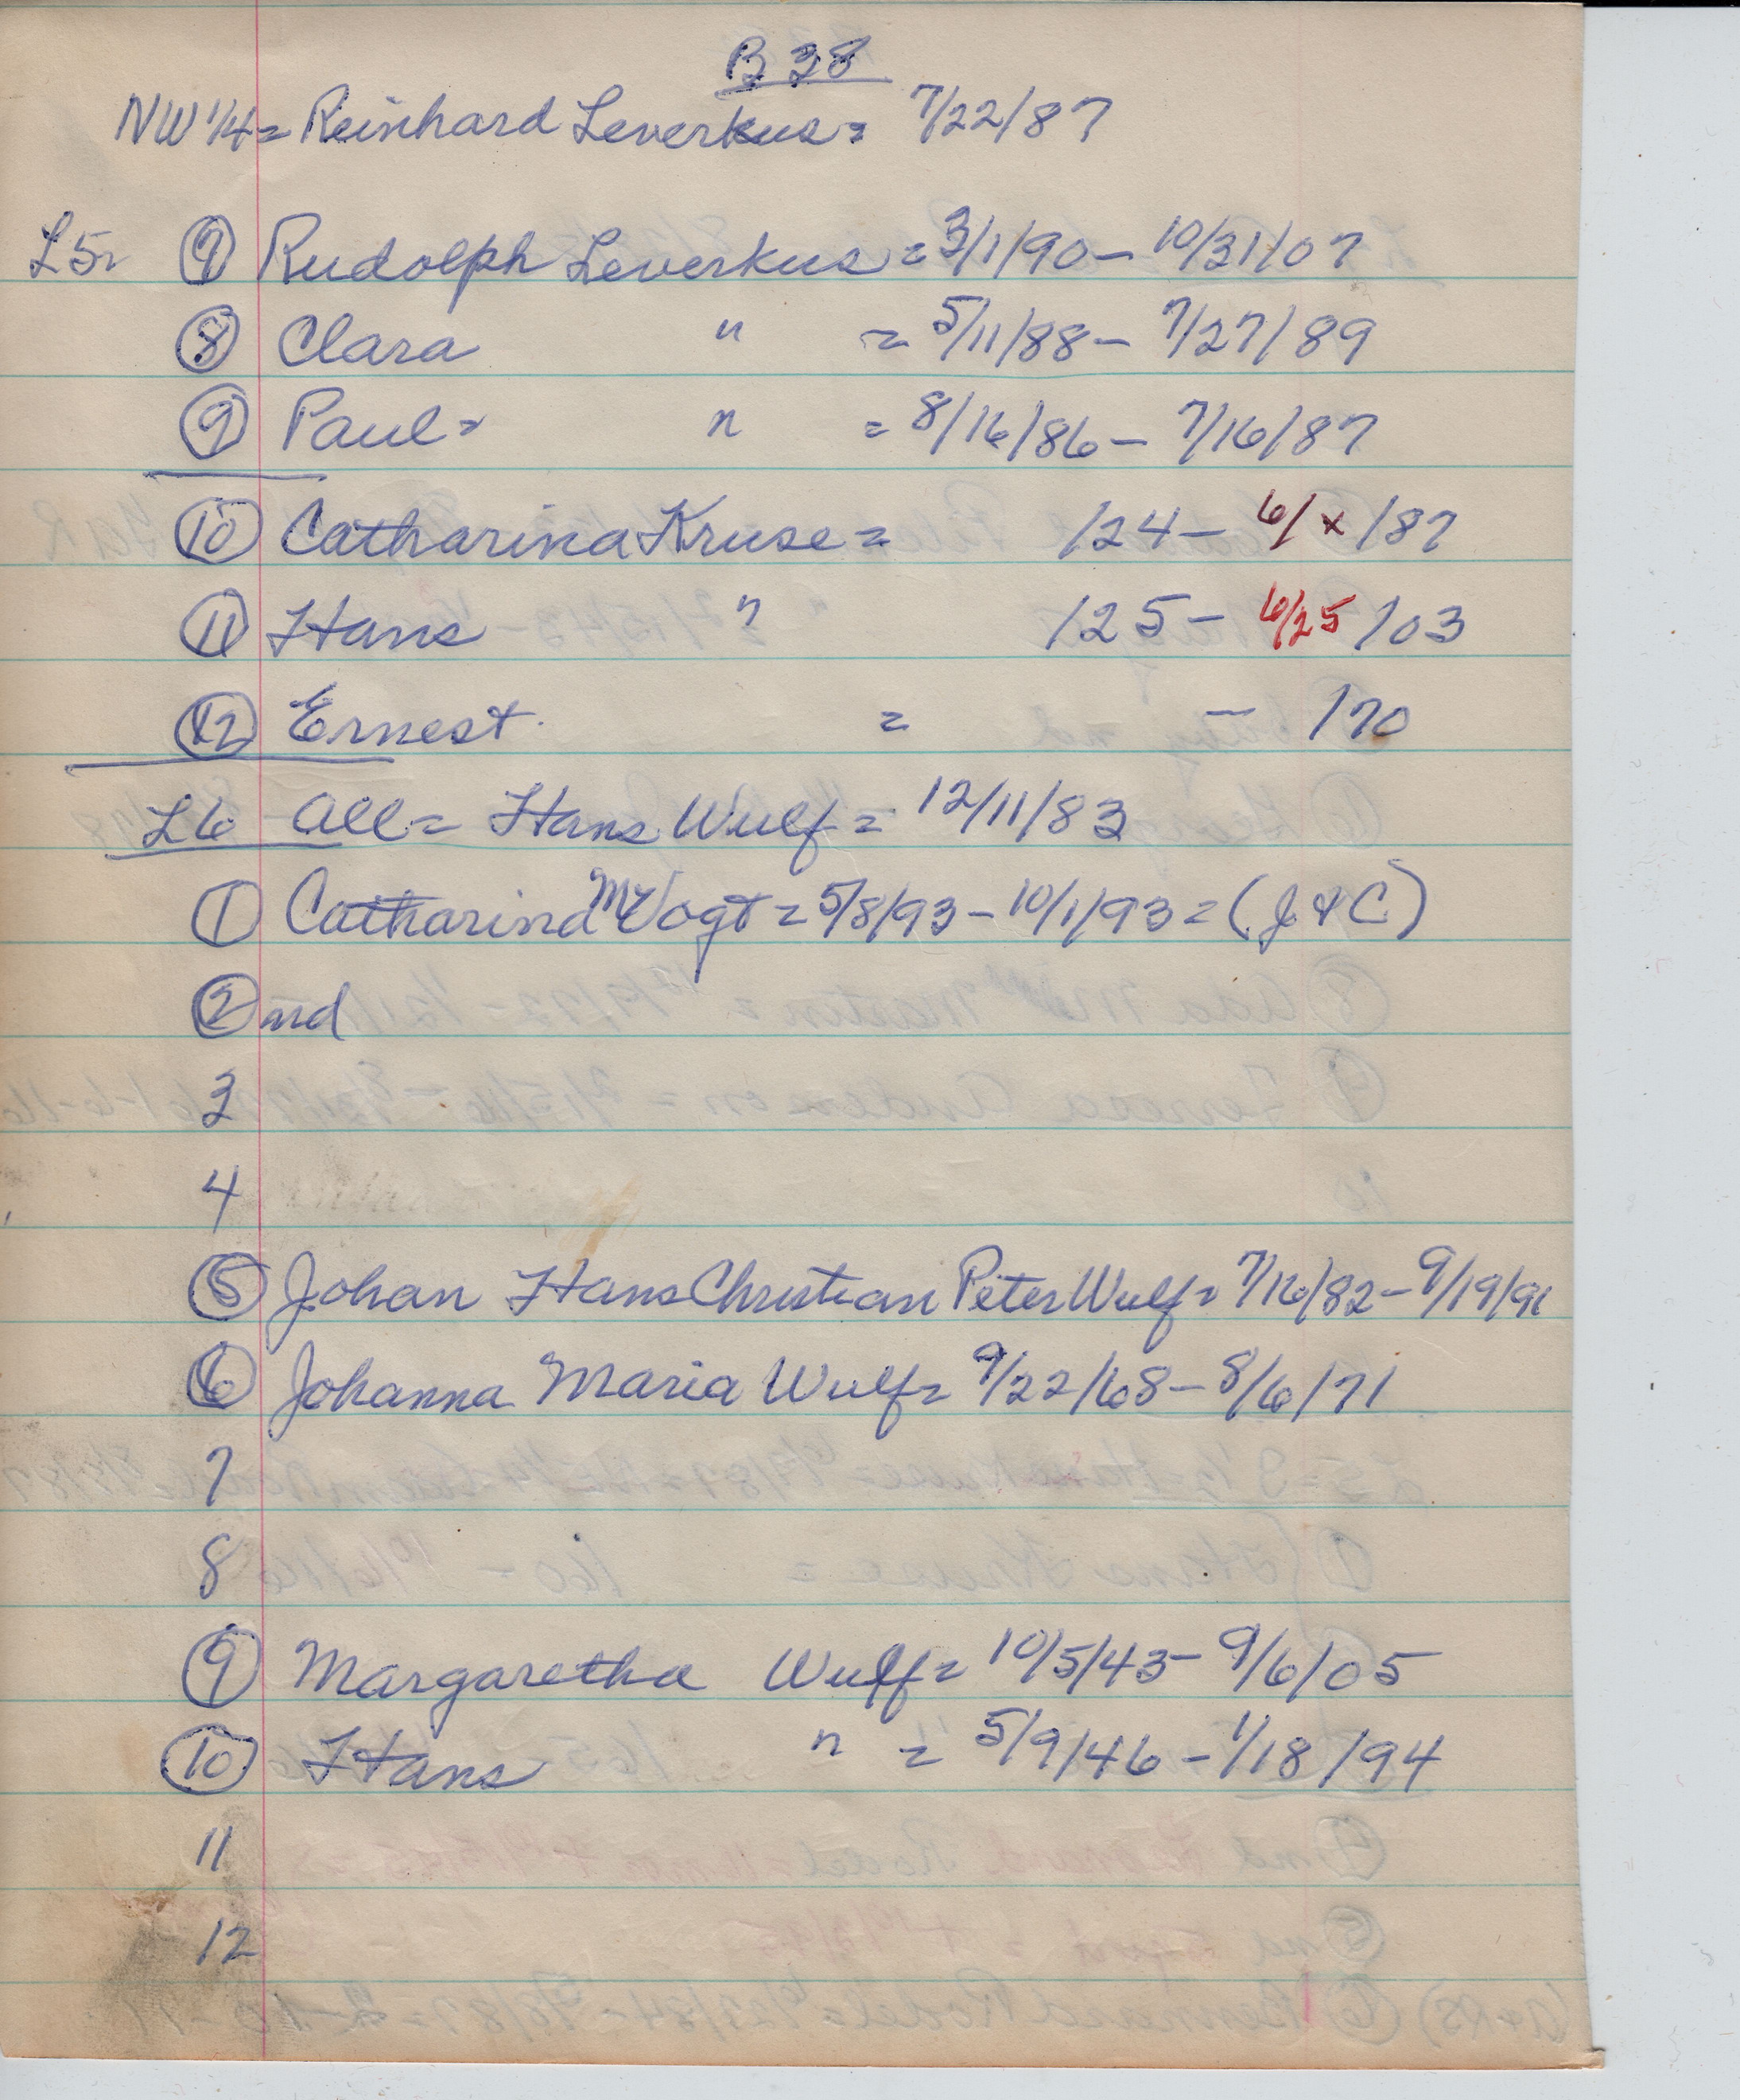 B 38
NW 1/4 = Reinhard Leverkus = 7/22/87
L5 = (7) Rudolph Leverkus = 3/1/90 – 10/31/07
(8) Clara " = 5/11/88 – 7/27/89
(9) Paul = " = 8/16/86 – 7/16/87
(10) Catharina Kruse = /24 – 6/x/87
(11) Hans " /25 – 6/25/03
(12) Ernest = – /70
L6 All = Hans Wulf = 12/11/83
(1) Catharina M Vogt = 5/8/93 – 10/1/93 = (J & C)
(2) nd
3
4
(5) Johan Hans Christian Peter Wulf = 7/16/82 – 9/19/91
(6) Johanna Maria Wulf = 9/22/68 – 8/6/71
7
8
(9) Margaretha Wulf = 10/5/43 – 9/6/05
(10) Hans " = 5/9/46 – 1/18/94
11
12